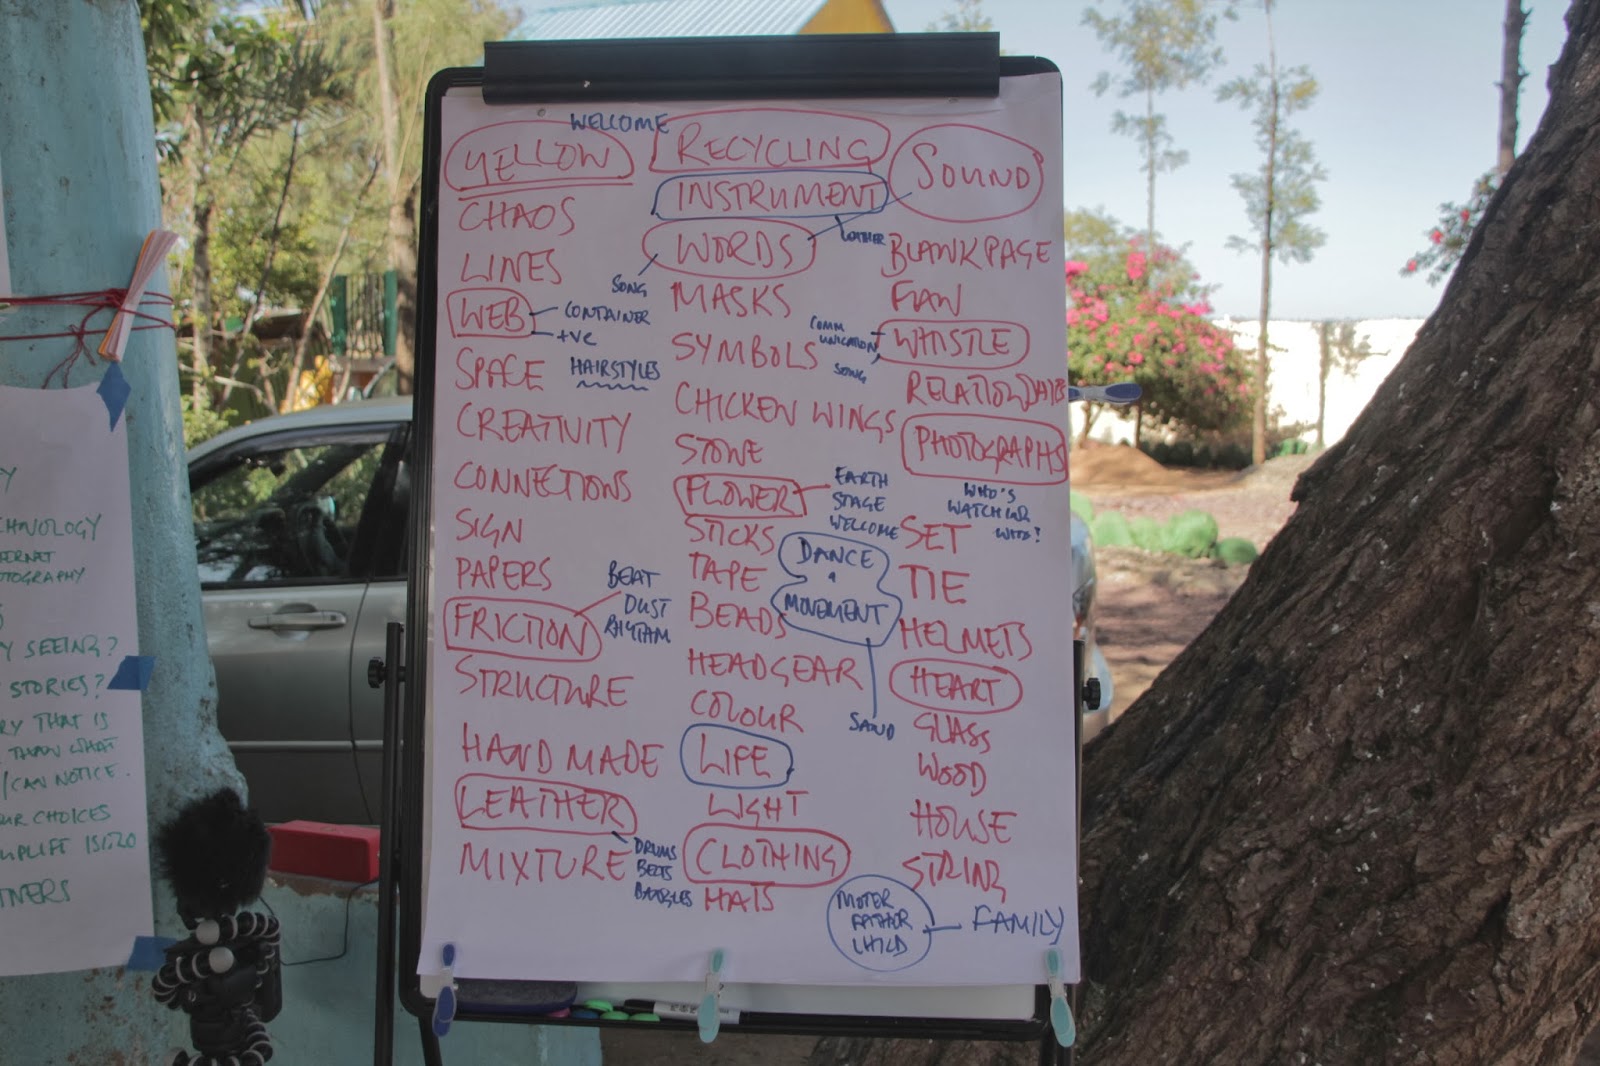 WELCOME
YELLOW
CHAOS
LINES
WEB
CONTAINER
+VE
SPACE
HAIRSTYLES
CREATIVITY
CONNECTIONS
SIGN
PAPERS
FRICTION
BEAT
DUST
RHYTHM
STRUCTURE
HAND MADE
LEATHER
DRUMS
BELTS
BANGLES
MIXTURE
RECYCLING
INSTRUMENT
LEATHER
WORDS
SONG
MASKS
SYMBOLS
CHICKEN WINGS
STONE
FLOWER
EARTH
STAGE
WELCOME
STICKS
TAPE
BEADS
DANCE
+
MOVEMENT
SAND
HEADGEAR
COLOUR
LIFE
LIGHT
CLOTHING
HATS
SOUND
BLANK PAGE
FLAW
WHISTLE
COMM
UNICATION
SONG
PHOTOGRAPHS
WHO'S
WATCHING
WITH?
SET
TIE
HELMETS
HEART
GLASS
WOOD
HOUSE
STRING
MOTER
FATHER
CHILD
FAMILY
CHNOLOGY
ERNET
OTOGRAPHY
Y SEEING?
STORIES?
RY THAT IS
THAN WHAT
/CAN NOTICE.
UR CHOICES
UPLIFT
TNERS